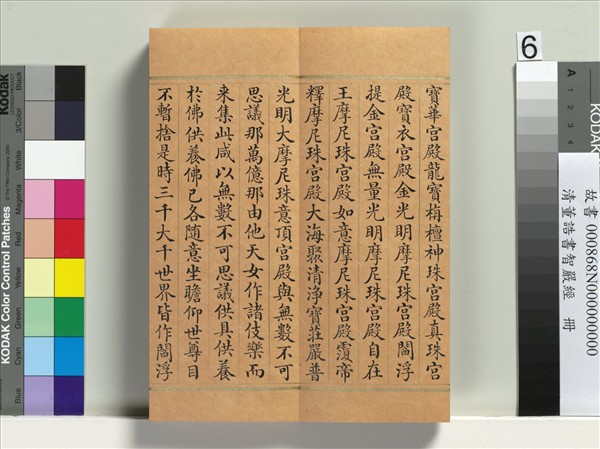 寶華宮殿龍寶栴檀神珠宮殿真珠宮
殿寶衣宮殿金光明摩尼珠宮殿閻浮
提金宮殿無量光明摩尼珠宮殿自在
王摩尼珠宮殿如意摩尼珠宮殿霞帝
釋摩尼珠宮殿大海聚清淨寶莊嚴普
光明大摩尼珠意頂宮殿與無數不可
思議那萬億那由他天女作諸伎樂而
来集此咸以無數不可思議供具供養
於佛供養佛已各隨意坐瞻仰世尊目
不暫捨是時三千大千世界皆作閻浮
6
A 1 2 3 4
故書 000868N000000000
清董誥書智嚴經 冊
Kodak
KODAK Color Control Patches
© The Tiffen Company, 2000
Blue
Cyan
Green
Yellow
Red
Magenta
White
3/Color
Black